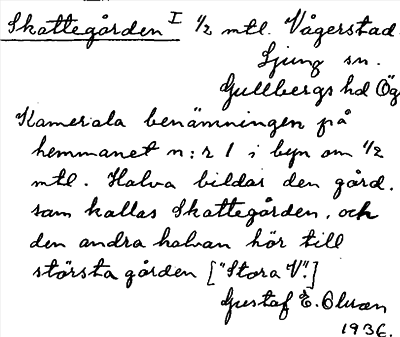 Skattegården I 1/2 mtl. Vågerstad
Ljung sn.
Gullbergs hd Ög.
Kamerala benämningen på
hemmanet n:r 1 i byn om 1/2
mtl. Halva bildar den gård.
som kallas Skattegården, och
den andra halvan hör till
största gården ["Stora V."]
Gustaf E. Olsson
1936.